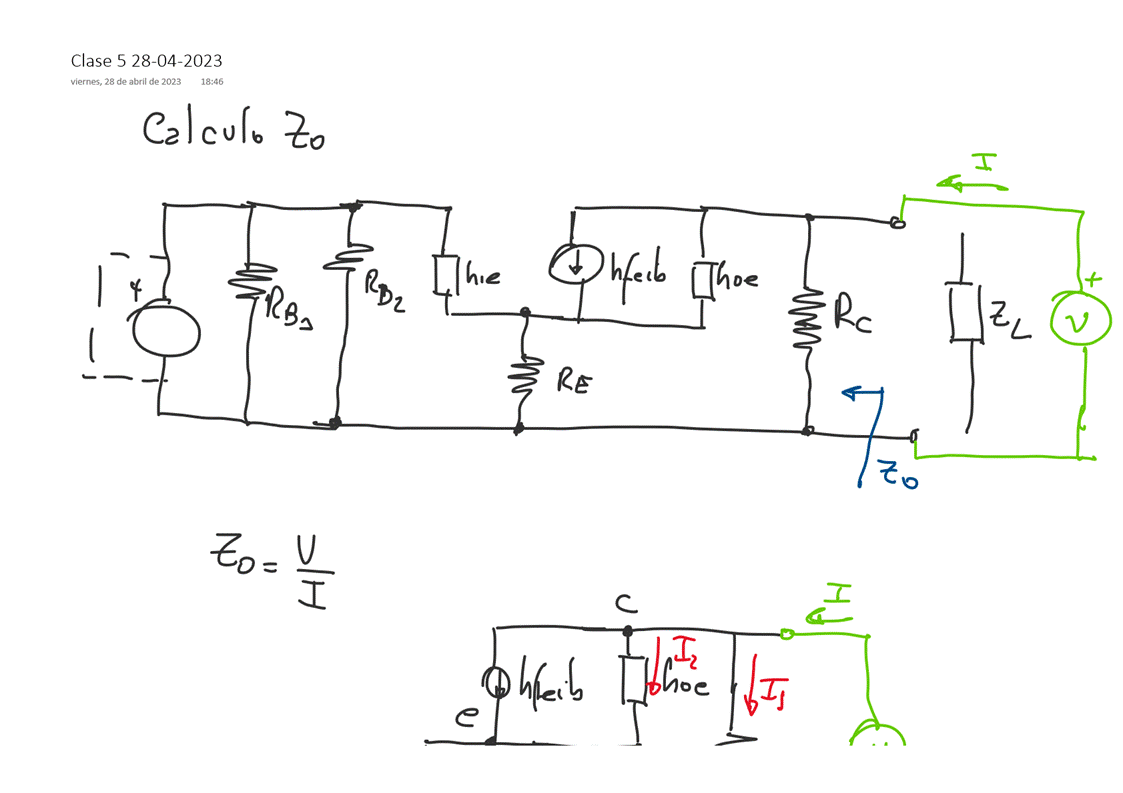 Clase 5 28-04-2023
viernes, 28 de abril de 2023 18:46
Calculo Zo
I
+
RB1
RB2
hie
hfeib
hoe
RC
ZL
+
V
RE
Zo
Zo = V
I
C
I
hfeib
I2
hoe
I1
e